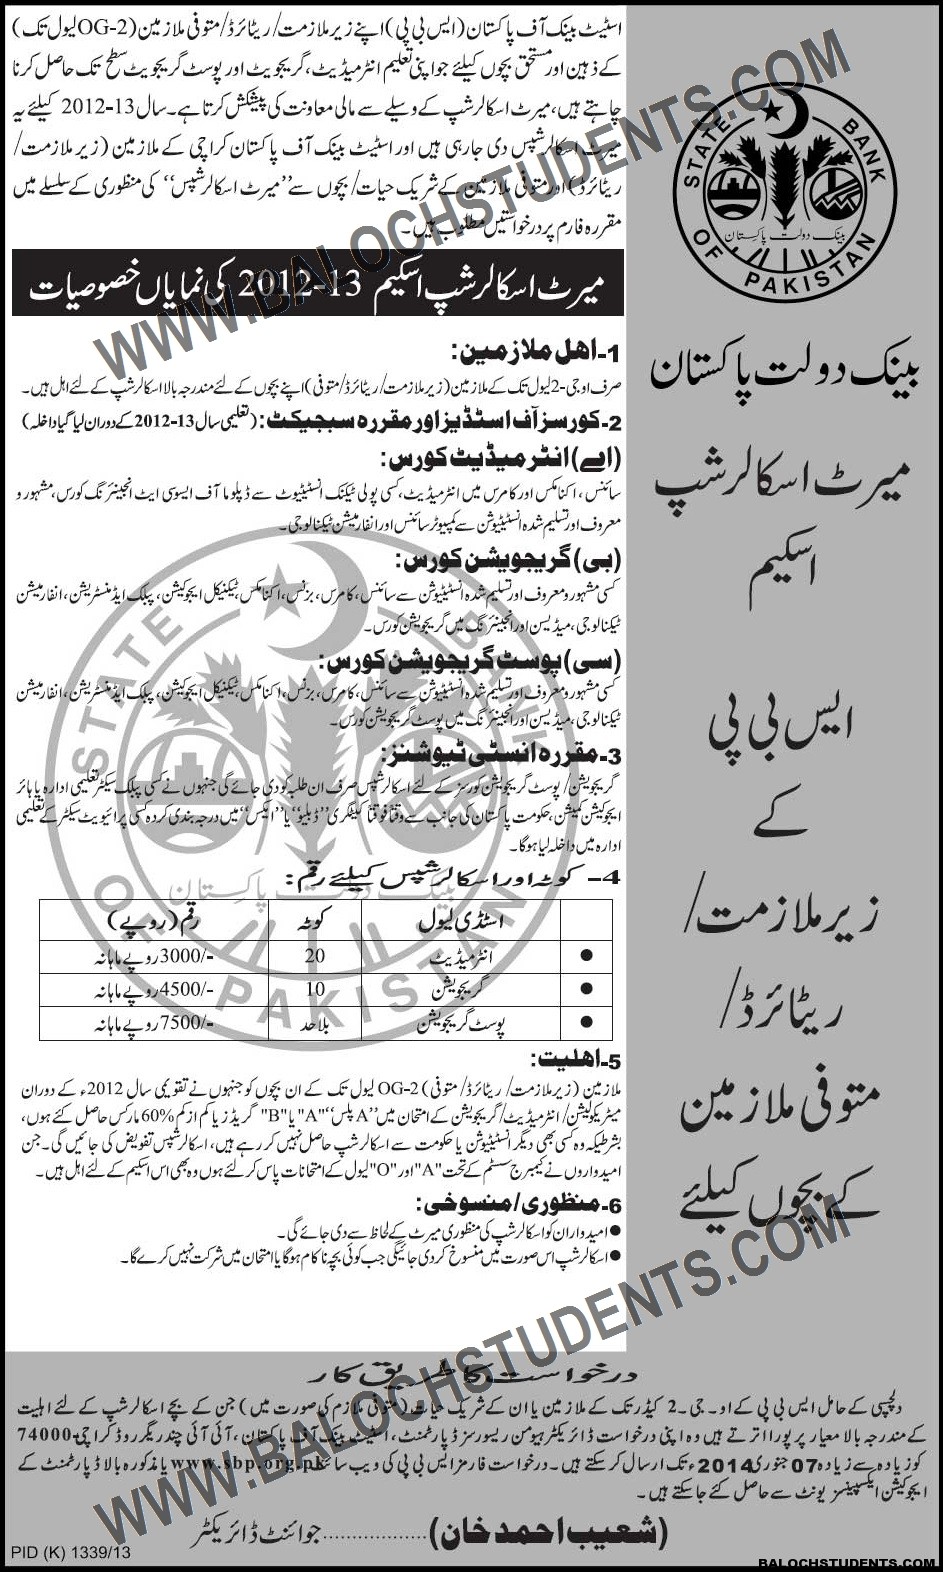 اسٹیٹ بینک آف پاکستان (ایس بی پی) اپنے زیر ملازمت/ ریٹائرڈ/ متوفی ملازمین (OG-2 لیول تک)
کے ذہین اور مستحق بچوں کیلئے جو اپنی تعلیم انٹرمیڈیٹ، گریجویٹ اور پوسٹ گریجویٹ سطح تک حاصل کرنا
چاہتے ہیں، میرٹ اسکالرشپ کے وسیلے سے مالی معاونت کی پیشکش کرتا ہے۔ سال 13-2012 کیلئے یہ
میرٹ اسکالرشپس دی جارہی ہیں اور اسٹیٹ بینک آف پاکستان کراچی کے ملازمین (زیر ملازمت/
ریٹائرڈ) اور متوفی ملازمین کے شریک حیات/ بچوں سے ”میرٹ اسکالرشپس“ کی منظوری کے سلسلے میں
مقررہ فارم پر درخواستیں مطلوب ہیں۔
میرٹ اسکالرشپ اسکیم 13-2012 کی نمایاں خصوصیات
1- اهل ملازمین:
صرف او جی-2 لیول تک کے ملازمین (زیر ملازمت/ ریٹائرڈ/ متوفی) اپنے بچوں کے لئے مندرجہ بالا اسکالرشپ کے لئے اہل ہیں۔
2- کورسز آف اسٹڈیز اور مقررہ سبجیکٹ: (تعلیمی سال 13-2012 کے دوران لیا گیا داخلہ)
(اے) انٹرمیڈیٹ کورس:
سائنس، اکنامکس اور کامرس میں انٹرمیڈیٹ، کسی پولی ٹیکنک انسٹیٹیوٹ سے ڈپلوما آف ایسوسی ایٹ انجینئرنگ کورس، مشہور و
معروف اور تسلیم شدہ انسٹیٹیوشن سے کمپیوٹر سائنس اور انفارمیشن ٹیکنالوجی۔
(بی) گریجویشن کورس:
کسی مشہور و معروف اور تسلیم شدہ انسٹیٹیوشن سے سائنس، کامرس، بزنس، اکنامکس، ٹیکنیکل ایجوکیشن، پبلک ایڈمنسٹریشن، انفارمیشن
ٹیکنالوجی، میڈیسن اور انجینئرنگ میں گریجویشن کورس۔
(سی) پوسٹ گریجویشن کورس:
کسی مشہور و معروف اور تسلیم شدہ انسٹیٹیوشن سے سائنس، کامرس، بزنس، اکنامکس، ٹیکنیکل ایجوکیشن، پبلک ایڈمنسٹریشن، انفارمیشن
ٹیکنالوجی، میڈیسن اور انجینئرنگ میں پوسٹ گریجویشن کورس۔
3- مقررہ انسٹی ٹیوشنز:
گریجویشن/ پوسٹ گریجویشن کورسز کے لئے اسکالرشپس صرف ان طلبہ کو دی جائے گی جنہوں نے کسی پبلک سیکٹر تعلیمی ادارہ یا ہائر
ایجوکیشن کمیشن، حکومت پاکستان کی جانب سے وقتاً فوقتاً کیٹگری ”ڈبلیو“ یا ”ایکس“ میں درجہ بندی کردہ کسی پرائیویٹ سیکٹر کے تعلیمی
ادارہ میں داخلہ لیا ہوگا۔
4- کوٹہ اور اسکالرشپس کیلئے رقم:
اسٹڈی لیول کوٹہ رقم (روپے)
● انٹرمیڈیٹ 20 3000/- روپے ماہانہ
● گریجویشن 10 4500/- روپے ماہانہ
● پوسٹ گریجویشن بلا حد 7500/- روپے ماہانہ
5- اهلیت:
ملازمین (زیر ملازمت/ ریٹائرڈ/ متوفی) OG-2 لیول تک کے ان بچوں کو جنہوں نے تقویمی سال 2012ء کے دوران
میٹریکولیشن/ انٹرمیڈیٹ/ گریجویشن کے امتحان میں ”A پلس“ "A" یا "B" گریڈز یا کم از کم 60% مارکس حاصل کئے ہوں،
بشرطیکہ وہ کسی بھی دیگر انسٹیٹیوشن یا حکومت سے اسکالرشپ حاصل نہیں کر رہے ہیں، اسکالرشپس تفویض کی جائیں گی۔ جن
امیدواروں نے کیمبرج سسٹم کے تحت "A" اور "O" لیول کے امتحانات پاس کر لئے ہوں وہ بھی اس اسکیم کے لئے اہل ہیں۔
6- منظوری/منسوخی:
● امیدواران کو اسکالرشپ کی منظوری میرٹ کے لحاظ سے دی جائے گی۔
● اسکالرشپ اس صورت میں منسوخ کردی جائیگی جب کوئی بچہ ناکام ہوگا یا امتحان میں شرکت نہیں کرے گا۔
STATE BANK OF PAKISTAN
بینک دولت پاکستان
بینک دولت پاکستان
میرٹ اسکالرشپ
اسکیم
ایس بی پی
کے
زیر ملازمت/
ریٹائرڈ/
متوفی ملازمین
کے بچوں کیلئے
STATE BANK OF PAKISTAN
بینک دولت پاکستان
درخواست کا طریق کار
دلچسپی کے حامل ایس بی پی کے او۔جی۔2 کیڈر تک کے ملازمین یا ان کے شریک حیات (متوفی ملازم کی صورت میں) جن کے بچے اسکالرشپ کے لئے اہلیت
کے مندرجہ بالا معیار پر پورا اترتے ہیں وہ اپنی درخواست ڈائریکٹر ہیومن ریسورسز ڈپارٹمنٹ، اسٹیٹ بینک آف پاکستان، آئی آئی چندریگر روڈ کراچی-74000
کو زیادہ سے زیادہ 07 جنوری 2014ء تک ارسال کرسکتے ہیں۔ درخواست فارمز ایس بی پی کی ویب سائٹ www.sbp.org.pk یا مذکورہ بالا ڈپارٹمنٹ کے
ایجوکیشن ایکسپینسز یونٹ سے حاصل کئے جاسکتے ہیں۔
(شعیب احمد خان) .................... جوائنٹ ڈائریکٹر
PID (K) 1339/13
WWW.BALOCHSTUDENTS.COM
WWW.BALOCHSTUDENTS.COM
BALOCHSTUDENTS.COM